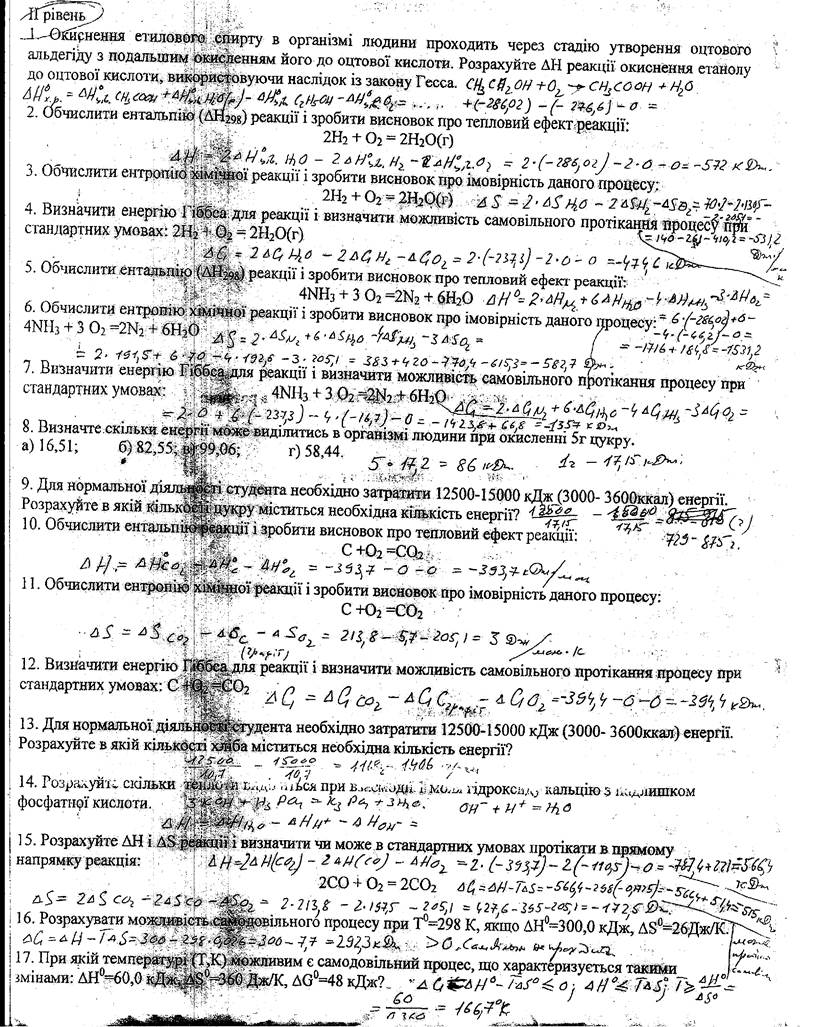 ІІ рівень
1. Окиснення етилового спирту в організмі людини проходить через стадію утворення оцтового
альдегіду з подальшим окисленням його до оцтової кислоти. Розрахуйте ΔH реакції окиснення етанолу
до оцтової кислоти, використовуючи наслідок із закону Гесса. CH3CH2OH + O2 → CH3COOH + H2O
+(-286,02) - (-276,6) - 0 =
2. Обчислити ентальпію (ΔH298) реакції і зробити висновок про тепловий ефект реакції:
2H2 + O2 = 2H2O(г)
= 2·(-286,02) - 2·0 - 0 = -572 кДж.
3. Обчислити ентропію хімічної реакції і зробити висновок про імовірність даного процесу:
2H2 + O2 = 2H2O(г) ΔS = 2·ΔS H2O - 2ΔS H2 - ΔS O2 =
4. Визначити енергію Гіббса для реакції і визначити можливість самовільного протікання процесу при
стандартних умовах: 2H2 + O2 = 2H2O(г)
ΔG = 2ΔG H2O - 2ΔG H2 - ΔG O2 = 2·(-237,3) - 2·0 - 0 = -474,6 кДж
5. Обчислити ентальпію (ΔH298) реакції і зробити висновок про тепловий ефект реакції:
4NH3 + 3 O2 =2N2 + 6H2O ΔH° = 2·ΔH N2 + 6ΔH H2O - 4·ΔH NH3 - 3·ΔH O2 =
6. Обчислити ентропію хімічної реакції і зробити висновок про імовірність даного процесу: = 6·(-286,02) + 0 -
4NH3 + 3 O2 =2N2 + 6H2O ΔS = 2·ΔS N2 + 6·ΔS H2O - 4ΔS NH3 - 3ΔS O2 = -4·(-46,2) - 0 =
= -1716 + 184,8 = -1531,2 кДж
= 2·191,5 + 6·70 - 4·192,6 - 3·205,1 = 383 + 420 - 770,4 - 615,3 = -582,7 Дж.
7. Визначити енергію Гіббса для реакції і визначити можливість самовільного протікання процесу при
стандартних умовах: 4NH3 + 3 O2 =2N2 + 6H2O ΔG = 2·ΔG N2 + 6·ΔG H2O - 4ΔG NH3 - 3ΔG O2 =
= 2·0 + 6·(-237,3) - 4·(-16,7) - 0 = -1423,8 + 66,8 = -1357 кДж
8. Визначте скільки енергії може виділитись в організмі людини при окисленні 5г цукру.
а) 16,51; б) 82,55; в) 99,06; г) 58,44.
5·17,2 = 86 кДж. 1г - 17,15 кДж.
9. Для нормальної діяльності студента необхідно затратити 12500-15000 кДж (3000- 3600ккал) енергії.
Розрахуйте в якій кількості цукру міститься необхідна кількість енергії? 12500/17,15 - 15000/17,15 = (г)
729 - 875 г.
10. Обчислити ентальпію реакції і зробити висновок про тепловий ефект реакції:
C +O2 =CO2
ΔH = ΔH°CO2 - ΔH°C - ΔH°O2 = -393,7 - 0 - 0 = -393,7 кДж/моль
11. Обчислити ентропію хімічної реакції і зробити висновок про імовірність даного процесу:
C +O2 =CO2
ΔS = ΔS CO2 - ΔS C (графіт) - ΔS O2 = 213,8 - 5,7 - 205,1 = 3 Дж/моль·К
12. Визначити енергію Гіббса для реакції і визначити можливість самовільного протікання процесу при
стандартних умовах: C +O2 =CO2 ΔG = ΔG CO2 - ΔG C графіт - ΔG O2 = -394,4 - 0 - 0 = -394,4 кДж.
13. Для нормальної діяльності студента необхідно затратити 12500-15000 кДж (3000- 3600ккал) енергії.
Розрахуйте в якій кількості хліба міститься необхідна кількість енергії?
12500/10,7 - 15000/10,7 =
14. Розрахуйте скільки теплоти виділиться при взаємодії 1 моль гідроксиду кальцію з надлишком
фосфатної кислоти. 3KOH + H3PO4 = K3PO4 + 3H2O. OH⁻ + H⁺ = H2O
ΔH = ΔH H2O - ΔH H⁺ - ΔH OH⁻ =
15. Розрахуйте ΔH і ΔS реакції і визначити чи може в стандартних умовах протікати в прямому
напрямку реакція: ΔH = 2ΔH(CO2) - 2ΔH(CO) - ΔH O2 = 2·(-393,7) - 2(-110,5) - 0 = -787,4 + 221 = 566,4 кДж
2CO + O2 = 2CO2 ΔG = ΔH - TΔS =
ΔS = 2ΔS CO2 - 2ΔS CO - ΔS O2 = 2·213,8 - 2·197,5 - 205,1 = 427,6 - 395 - 205,1 = -172,5 Дж.
16. Розрахувати можливість самодовільного процесу при T⁰=298 К, якщо ΔH⁰=300,0 кДж, ΔS⁰=26Дж/К.
ΔG = ΔH - TΔS = 300 - 298·0,026 = 300 - 7,7 = 292,3 кДж. >0
17. При якій температурі (Т,К) можливим є самодовільний процес, що характеризується такими
змінами: ΔH⁰=60,0 кДж, ΔS⁰=360 Дж/К, ΔG⁰=48 кДж? ΔG = ΔH° - TΔS° ≤ 0; ΔH° ≤ TΔS; T ≥ ΔH°/ΔS° =
= 60/0,360 = 166,7°К